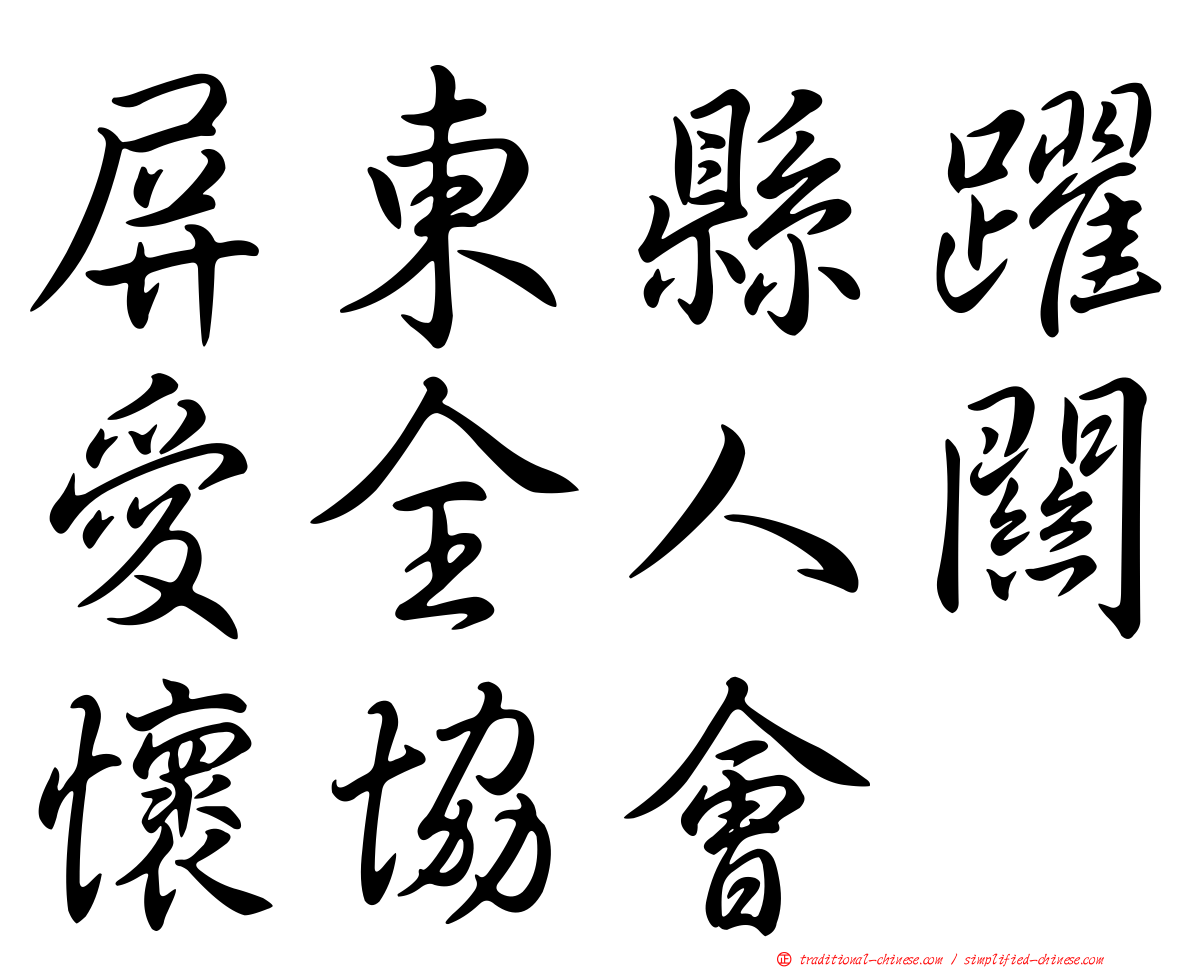 屏東縣躍
愛全人關
懷協會
正 traditional-chinese.com / simplified-chinese.com